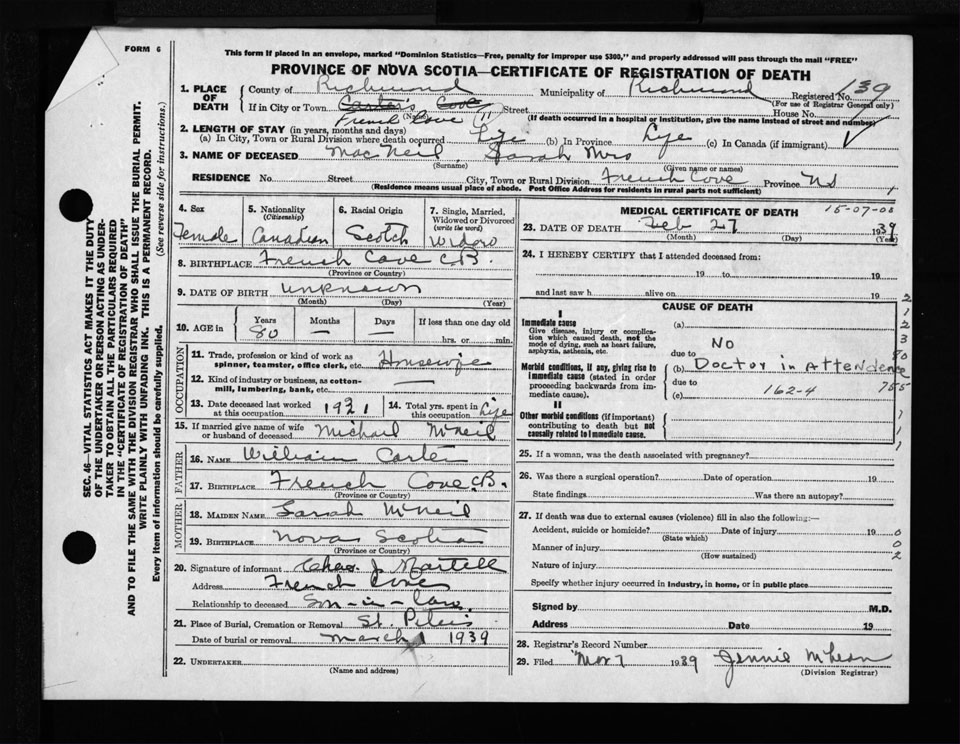 FORM 6
This form if placed in an envelope, marked "Dominion Statistics—Free, penalty for improper use $300," and properly addressed will pass through the mail "FREE"
PROVINCE OF NOVA SCOTIA—CERTIFICATE OF REGISTRATION OF DEATH
1. PLACE OF DEATH
County of Richmond Municipality of Richmond Registered No. 39
(For use of Registrar General only)
If in City or Town Carter's Cove Street House No.
French Cove (Name) (If death occurred in a hospital or institution, give the name instead of street and number)
2. LENGTH OF STAY (in years, months and days)
(a) In City, Town or Rural Division where death occurred Life (b) In Province Life (c) In Canada (if immigrant)
3. NAME OF DECEASED MacNeil, Sarah Mrs
(Surname) (Given name or names)
RESIDENCE No. Street City, Town or Rural Division French Cove Province NS
(Residence means usual place of abode. Post Office Address for residents in rural parts not sufficient)
4. Sex
Female
5. Nationality
(Citizenship)
Canadian
6. Racial Origin
Scotch
7. Single, Married, Widowed or Divorced
(write the word)
Widow
8. BIRTHPLACE French Cove C.B.
(Province or Country)
9. DATE OF BIRTH unknown
(Month) (Day) (Year)
10. AGE in
Years Months Days If less than one day old
80 — — hrs. or min.
OCCUPATION
11. Trade, profession or kind of work as spinner, teamster, office clerk, etc. Housewife
12. Kind of industry or business, as cotton-mill, lumbering, bank, etc. —
13. Date deceased last worked at this occupation 1921
14. Total yrs. spent in this occupation Life
15. If married give name of wife or husband of deceased Michael McNeil
FATHER
16. NAME William Carter
17. BIRTHPLACE French Cove C.B.
(Province or Country)
MOTHER
18. MAIDEN NAME Sarah McNeil
19. BIRTHPLACE Nova Scotia
(Province or Country)
20. Signature of informant Chas. J Martell
Address French Cove
Relationship to deceased Son-in-law
21. Place of Burial, Cremation or Removal St. Peters
Date of burial or removal March 1 1939
22. UNDERTAKER
(Name and address)
MEDICAL CERTIFICATE OF DEATH
23. DATE OF DEATH Feb 27 1939
(Month) (Day) (Year)
24. I HEREBY CERTIFY that I attended deceased from:
19 to 19
and last saw h alive on 19
CAUSE OF DEATH
I
Immediate cause
Give disease, injury or complication which caused death, not the mode of dying, such as heart failure, asphyxia, asthenia, etc.
(a)
No
due to
Morbid conditions, if any, giving rise to immediate cause (stated in order proceeding backwards from immediate cause).
(b) Doctor in Attendence
due to
(c) 162-4
II
Other morbid conditions (if important) contributing to death but not causally related to immediate cause.
25. If a woman, was the death associated with pregnancy?
26. Was there a surgical operation? Date of operation 19
State findings Was there an autopsy?
27. If death was due to external causes (violence) fill in also the following:—
Accident, suicide or homicide? Date of injury 19
(State which)
Manner of injury
(How sustained)
Nature of injury
Specify whether injury occurred in industry, in home, or in public place
Signed by M.D.
Address Date 19
28. Registrar's Record Number
29. Filed Mar 7 1939 Jennie McLean
(Division Registrar)
SEC. 46—VITAL STATISTICS ACT MAKES IT THE DUTY
OF THE UNDERTAKER OR PERSON ACTING AS UNDER-
TAKER TO OBTAIN ALL THE PARTICULARS REQUIRED
IN THE "CERTIFICATE OF REGISTRATION OF DEATH"
AND TO FILE THE SAME WITH THE DIVISION REGISTRAR WHO SHALL ISSUE THE BURIAL PERMIT.
WRITE PLAINLY WITH UNFADING INK. THIS IS A PERMANENT RECORD.
Every item of information should be carefully supplied. (See reverse side for instructions.)